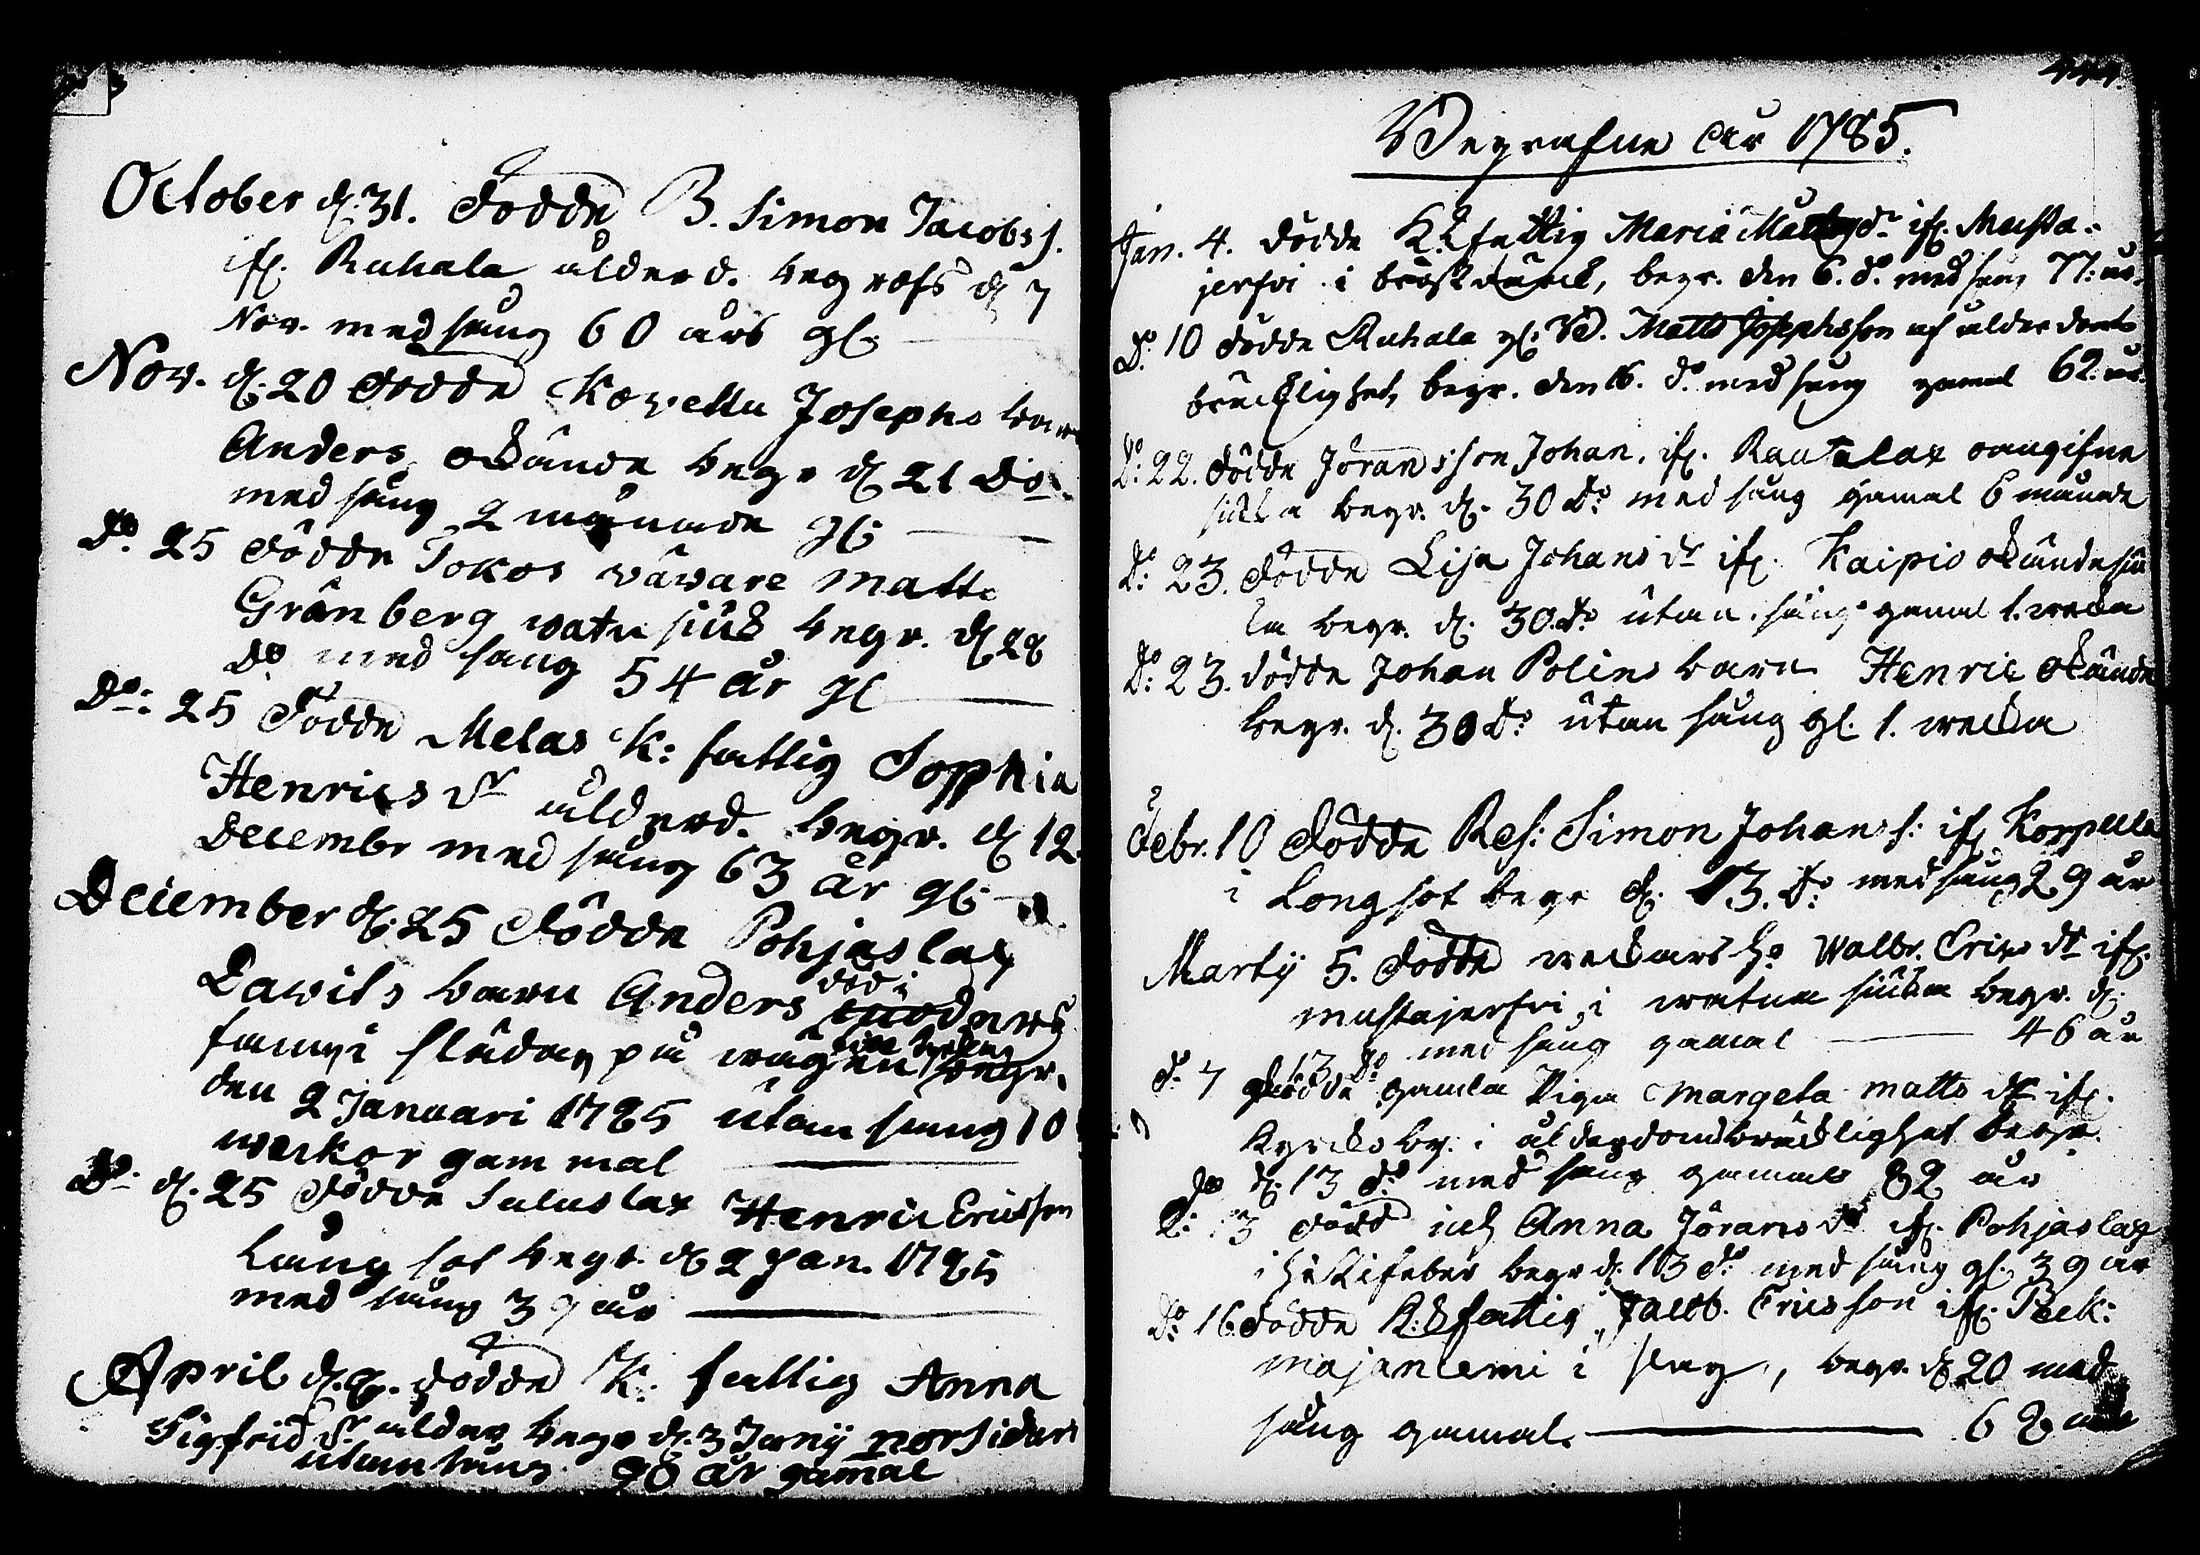 October d. 31. dödde B. Simon Jacobs s.
if. Ruhala ålderd. begrofs d 7
Nov. med sång 60 års gl.
Nov. d. 20 dödde Kovella Josephs barn
Anders okände begr d 21 Do
med sång 2 månade gl.
Do. 25 dödde Jokos wäware Matts
Grönberg watu siuk begr. d 28
do med sång 54 år gl
Do: 25 dödde Melas K: fattig Sophia
Henrics dr ålderd. begr. d 12
Decembr med sång 63 år gl.
December d. 25 dödde Pohjaslax
Dawits barn Anders död i
famn i slädan på wägen begr.
den 2 Januari 1785 utan sång 10
weckor gammal
Do. d. 25 dödde Saluslax Henric Ericsson
Lung sot begr. d 2 Jan. 1785
med sång 39 år
April d. 2. dödde K. fattig Anna
Sigfrids dr ålder begr d. 3 Junij norsidan
utan sång 90 år gamal
Begrafne År 1785.
Jan. 4. dödde K. fattig Maria Matts dr if. Musta-
jerfvi i bröstwärck, begr. den 6. do med sång 77. år.
Do: 10 dödde Ruhala gl. Vd. Matts Josephsson af ålderdoms
bräcklighet, begr. den 16. do. med sång gamal 62. år.
Do: 22. dödde Jörans son Johan, if. Rautalax oangifne
siukla begr. d. 30 do med sång gamal 6 månade
Do: 23. dödde Lisa Johans dr if. Kaipio okände siu
la begr. d. 30. do utan sång gamal 1. wecka
Do: 23. dödde Johan Polins barn Henric okände
begr. d. 30 do utan sång gl. 1. wecka
Febr. 10 dödde Res: Simon Johans s: if. Korpella
i Longsot begr d. 13. do: med sång 29 år
Martij 5. dödde wäckars ho Walbr. Erics dr if.
mustajerfvi i watun siukan begr. d.
13 do med sång gamal 46 år
d: 7 dödde gamla Piga Margeta Matts dr if.
Kyrckoby: i ålderdoms bräcklighet begr.
d. 13 do: med sång gamal 82 år
D: 13 dödd inh Anna Jörans dr if. Pohjaslax
i hetzifeber begr d. 13 do. med sång gl. 39 år
Do: 16. dödde K: fattig Jacob. Ericsson if. Peck:
majaniemi i , begr. d 20 med
sång gamal. 68 år